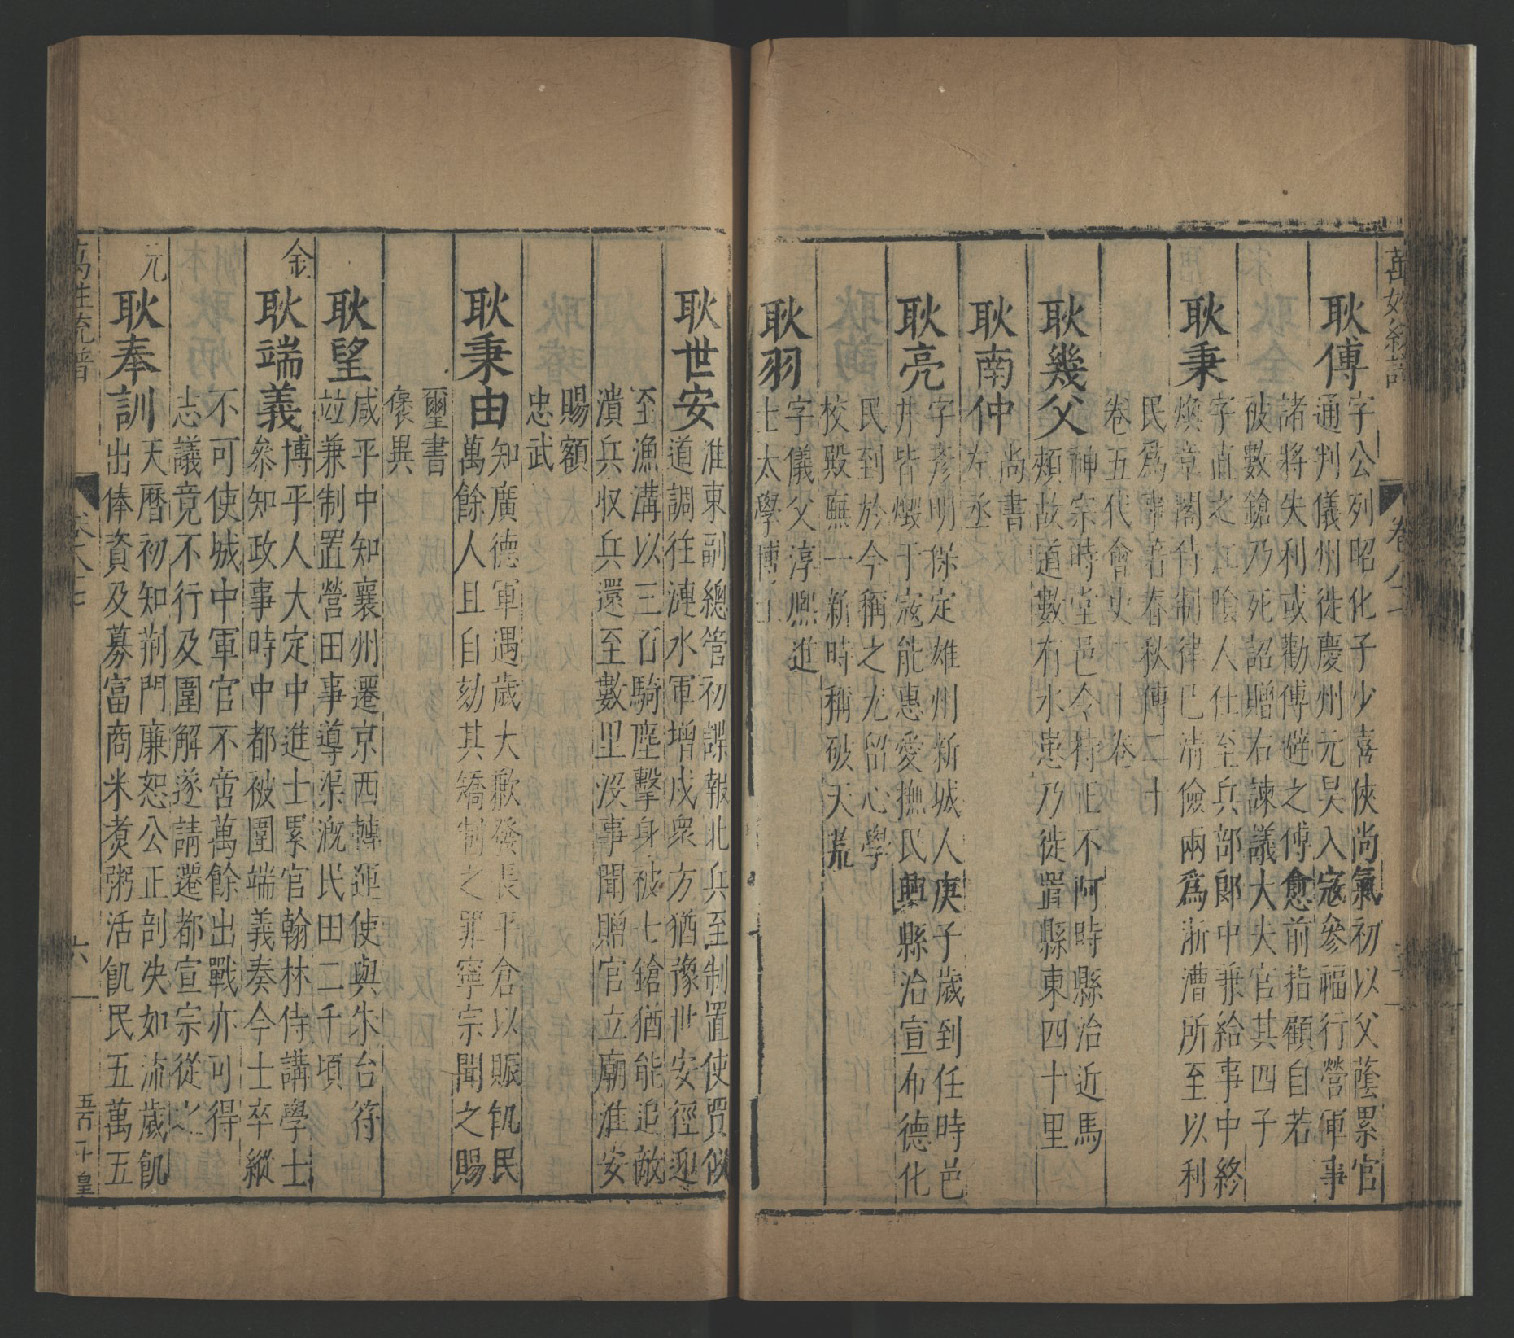 萬姓統譜
卷八十
耿傅
字公列昭化子少喜俠尚氣初以父蔭累官
通判儀州徙慶州元昊入寇參福行營軍事
諸將失利或勸傅避之傅愈前指顧自若
被數鎗乃死詔贈右諫議大夫官其四子
耿秉
字直之江陰人仕至兵部郎中兼給事中終
煥章閣待制律已清儉兩爲浙漕所至以利
民爲著春秋傳二十
卷五代會史二十卷
耿幾父
神宗時堂邑令特正不阿時縣治近馬
頰故道數有水患乃徙置縣東四十里
耿南仲
尚書
左丞
耿亮
字彥明保定雄州新城人庚子歲到任時邑
井皆燬于寇能惠愛撫民興縣治宣布德化
民到於今稱之尤留心學
校殿廡一新時稱破天荒
耿羽
字儀父淳熙進
士太學博士
耿世安
淮東副總管初諜報北兵至制置使賈似
道調往漣水軍增戍衆方猶豫世安徑迎
至漁溝以三百騎塵擊身被七鎗猶能追敵
潰兵收兵還至數里沒事聞贈官立廟淮安
賜額
忠武
耿秉由
知廣德軍遇歲大歉發長平倉以賑飢民
萬餘人且自劾其矯制之罪寧宗聞之賜
璽書
褒異
耿望
咸平中知襄州遷京西轉運使與朱台符
竝兼制置營田事導渠漑民田二千頃
金
耿端義
博平人大定中進士累官翰林侍講學士
叅知政事時中都被圍端義奏今士卒縱
不可使城中軍官不啻萬餘出戰亦可得
志議竟不行及圍解遂請遷都宣宗從之
元
耿奉訓
天曆初知荆門廉恕公正剖决如流歲飢
出俸資及募富商米煑粥活飢民五萬五
萬姓統譜
六